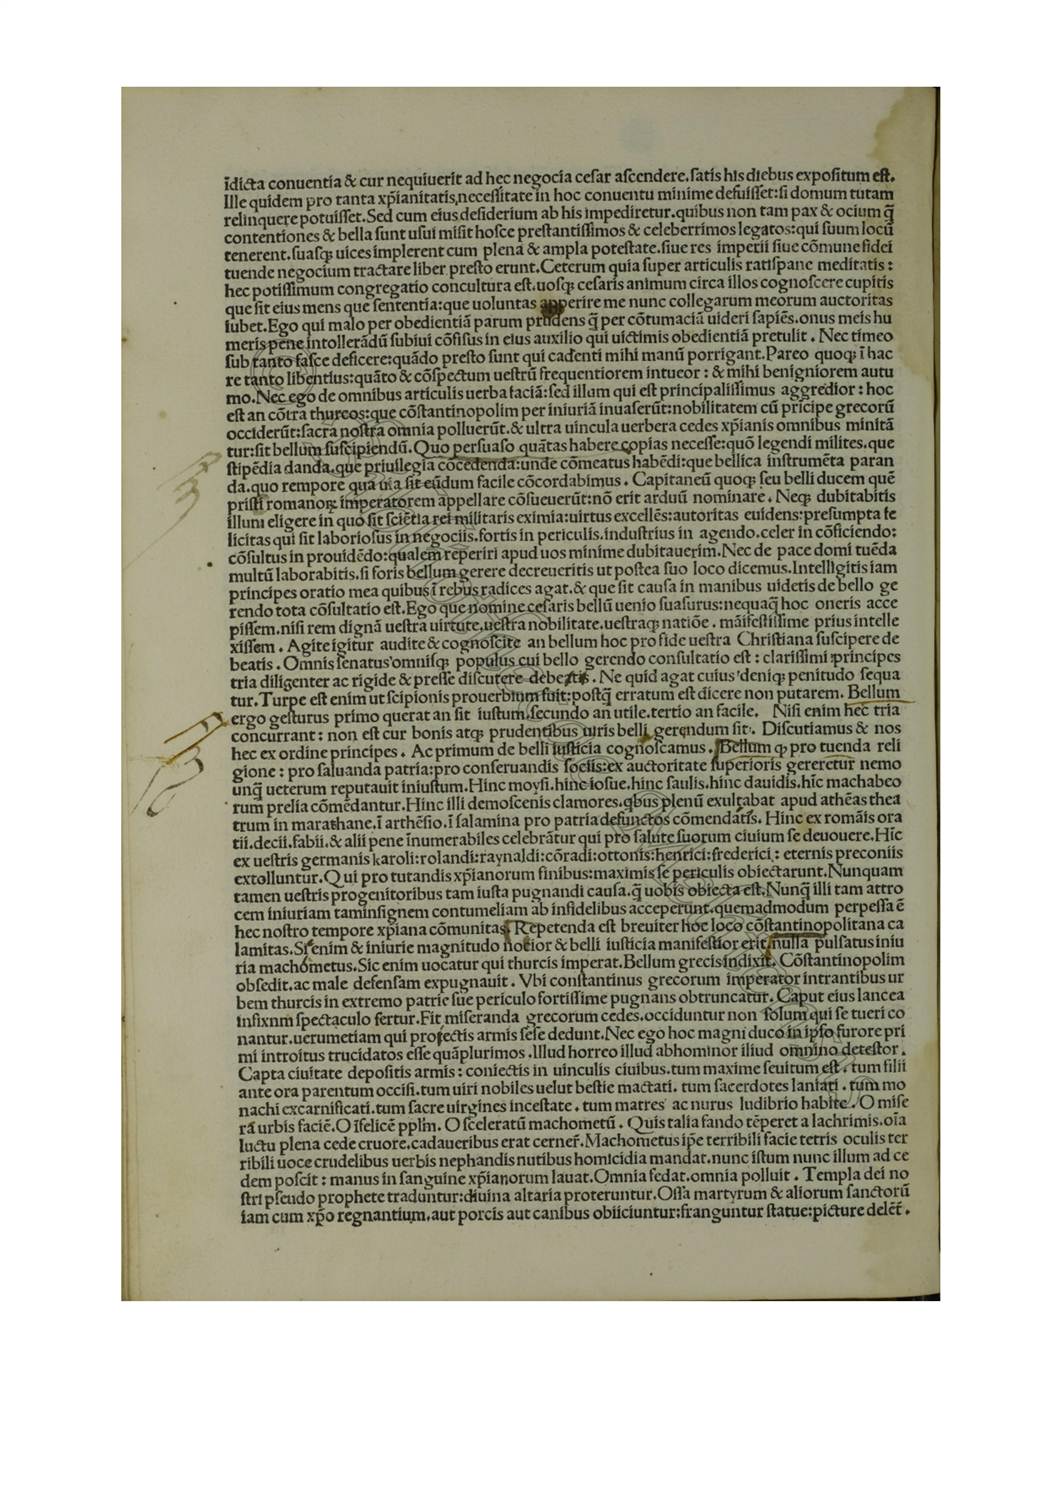 īdicta conuentia & cur nequiuerit ad hec negocia cesar ascendere.satis his diebus expositum est.
Ille quidem pro tanta xp̄ianitatis,necessitate in hoc conuentu minime defuisset:si domum tutam
relinquere potuisset.Sed cum eius desiderium ab his impediretur.quibus non tam pax & ocium q̄
contentiones & bella sunt usui misit hosce prestantissimos & celeberrimos legatos:qui suum locū
tenerent.suasq; uices implerent cum plena & ampla potestate.siue res imperii siue cōmune fidei
tuende negocium tractare liber presto erunt.Ceterum quia super articulis ratispane meditatis:
hec potissimum congregatio concultura est.uosq; cesaris animum circa illos cognoscere cupitis
que sit eius mens que sententia:que uoluntas apperire me nunc collegarum meorum auctoritas
iubet.Ego qui malo per obedientiā parum prudens q̄ per cōtumaciā uideri sapiēs.onus meis hu
meris pene intollerādū subiui cōfisus in eius auxilio qui uictimis obedientiā pretulit. Nec timeo
sub tanto fasce deficere:quādo presto sunt qui cadenti mihi manū porrigant.Pareo quoq; ī hac
re tanto libentius:quāto & cōspectum uestrū frequentiorem intueor: & mihi benigniorem autu
mo.Nec ego de omnibus articulis uerba faciā:sed illum qui est principalissimus aggredior: hoc
est an cōtra thurcos:que cōstantinopolim per iniuriā inuaserūt:nobilitatem cū pricipe grecorū
occiderūt:sacra nostra omnia polluerūt.& ultra uincula uerbera cedes xp̄ianis omnibus minitā
tur:sit bellum suscipiendū.Quo persuaso quātas habere copias necesse:quō legendi milites.que
stipēdia danda.que priuilegia cōcedenda:unde cōmeatus habēdi:que bellica instrumēta paran
da.quo rempore qua uia sit eūdum facile cōcordabimus. Capitaneū quoq; seu belli ducem quē
pristi romanoꝝ imperatorem appellare cōsueuerūt:nō erit arduū nominare. Neq; dubitabitis
illum eligere in quo sit sciētia rei militaris eximia:uirtus excellēs:autoritas euidens:presumpta fe
licitas qui sit laboriosus in negociis.fortis in periculis.industrius in agendo.celer in cōficiendo:
cōsultus in prouidēdo:qualem reperiri apud uos minime dubitauerim.Nec de pace domi tuēda
multū laborabitis.si foris bellum gerere decreueritis ut postea suo loco dicemus.Intelligitis iam
principes oratio mea quibus ī rebus radices agat.& que sit causa in manibus uidetis de bello ge
rendo tota cōsultatio est.Ego que nomine cesaris bellū uenio suasurus:nequaq̄ hoc oneris acce
pissem.nisi rem dignā uestra uirtute,uestra nobilitate.uestraq; natiōe. māifestissime prius intelle
xissem. Agite igitur audite & cognoscite an bellum hoc pro fide uestra Christiana suscipere de
beatis. Omnis senatus omnisq; populus cui bello gerendo consultatio est: clarissimi principes
tria diligenter ac rigide & presse discutere debetis. Ne quid agat cuius deniq; penitudo sequa
tur.Turpe est enim ut scipionis prouerbium fuit:postq̄ erratum est dicere non putarem. Bellum
ergo gesturus primo querat an sit iustum.secundo an utile.tertio an facile. Nisi enim hec tria
concurrant: non est cur bonis atq; prudentibus uiris belli gerendum sit. Discutiamus & nos
hec ex ordine principes. Ac primum de belli iusticia cognoscamus. Bellum ꝙ pro tuenda reli
gione: pro saluanda patria:pro conseruandis sociis:ex auctoritate superioris gereretur nemo
unq̄ ueterum reputauit iniustum.Hinc moysi.hinc iosue.hinc saulis.hinc dauidis.hīc machabeo
rum prelia cōmēdantur.Hinc illi demoscenis clamores.q̄bus plenū exultabat apud athēas thea
trum in marathane.ī arthēsio.ī salamina pro patria defunctos cōmendatis. Hinc ex romāis ora
tii.decii.fabii.& alii pene īnumerabiles celebrātur qui pro salute suorum ciuium se deuouere.Hīc
ex uestris germanis karoli:rolandi:raynaldi:cōradi:ottonis:henrici:frederici: eternis preconiis
extolluntur.Qui pro tutandis xp̄ianorum finibus:maximis se periculis obiectarunt.Nunquam
tamen uestris progenitoribus tam iusta pugnandi causa.q̄ uobis obiecta est.Nunq̄ illi tam attro
cem iniuriam taminsignem contumeliam ab infidelibus acceperunt.quemadmodum perpessa ē
hec nostro tempore xp̄iana cōmunitas.Repetenda est breuiter hoc loco cōstantinopolitana ca
lamitas.Si enim & iniurie magnitudo notior & belli iusticia manifestior erit.nulla pulsatus iniu
ria machometus.Sic enim uocatur qui thurcis imperat.Bellum grecis indixit. Cōstantinopolim
obsedit.ac male defensam expugnauit. Vbi constantinus grecorum imperator intrantibus ur
bem thurcis in extremo patrie sue periculo fortissime pugnans obtruncatur. Caput eius lancea
infixnm spectaculo fertur.Fit miseranda grecorum cedes.occiduntur non solum qui se tueri co
nantur.uerumetiam qui proiectis armis sese dedunt.Nec ego hoc magni duco in ipso furore pri
mi introitus trucidatos esse quāplurimos.Illud horreo illud abhominor iliud omnino detestor.
Capta ciuitate depositis armis: coniectis in uinculis ciuibus.tum maxime seuitum est. tum filii
ante ora parentum occisi.tum uiri nobiles uelut bestie mactati. tum sacerdotes laniati. tum mo
nachi excarnificati.tum sacre uirgines incestate. tum matres ac nurus ludibrio habite. O mise
rā urbis faciē.O īfelicē pplm̄. O sceleratū machometū. Quis talia fando tēperet a lachrimis.oīa
luctu plena cede cruore.cadaueribus erat cerner̄.Machometus ip̄e terribili facie tetris oculis ter
ribili uoce crudelibus uerbis nephandis nutibus homicidia mandat.nunc istum nunc illum ad ce
dem poscit: manus in sanguine xp̄ianorum lauat.Omnia fedat.omnia polluit. Templa dei no
stri pseudo prophete traduntur:diuina altaria proteruntur.Ossa martyrum & aliorum sanctorū
iam cum xp̄o regnantium.aut porcis aut canibus obiiciuntur:franguntur statue:picture delēt̄.